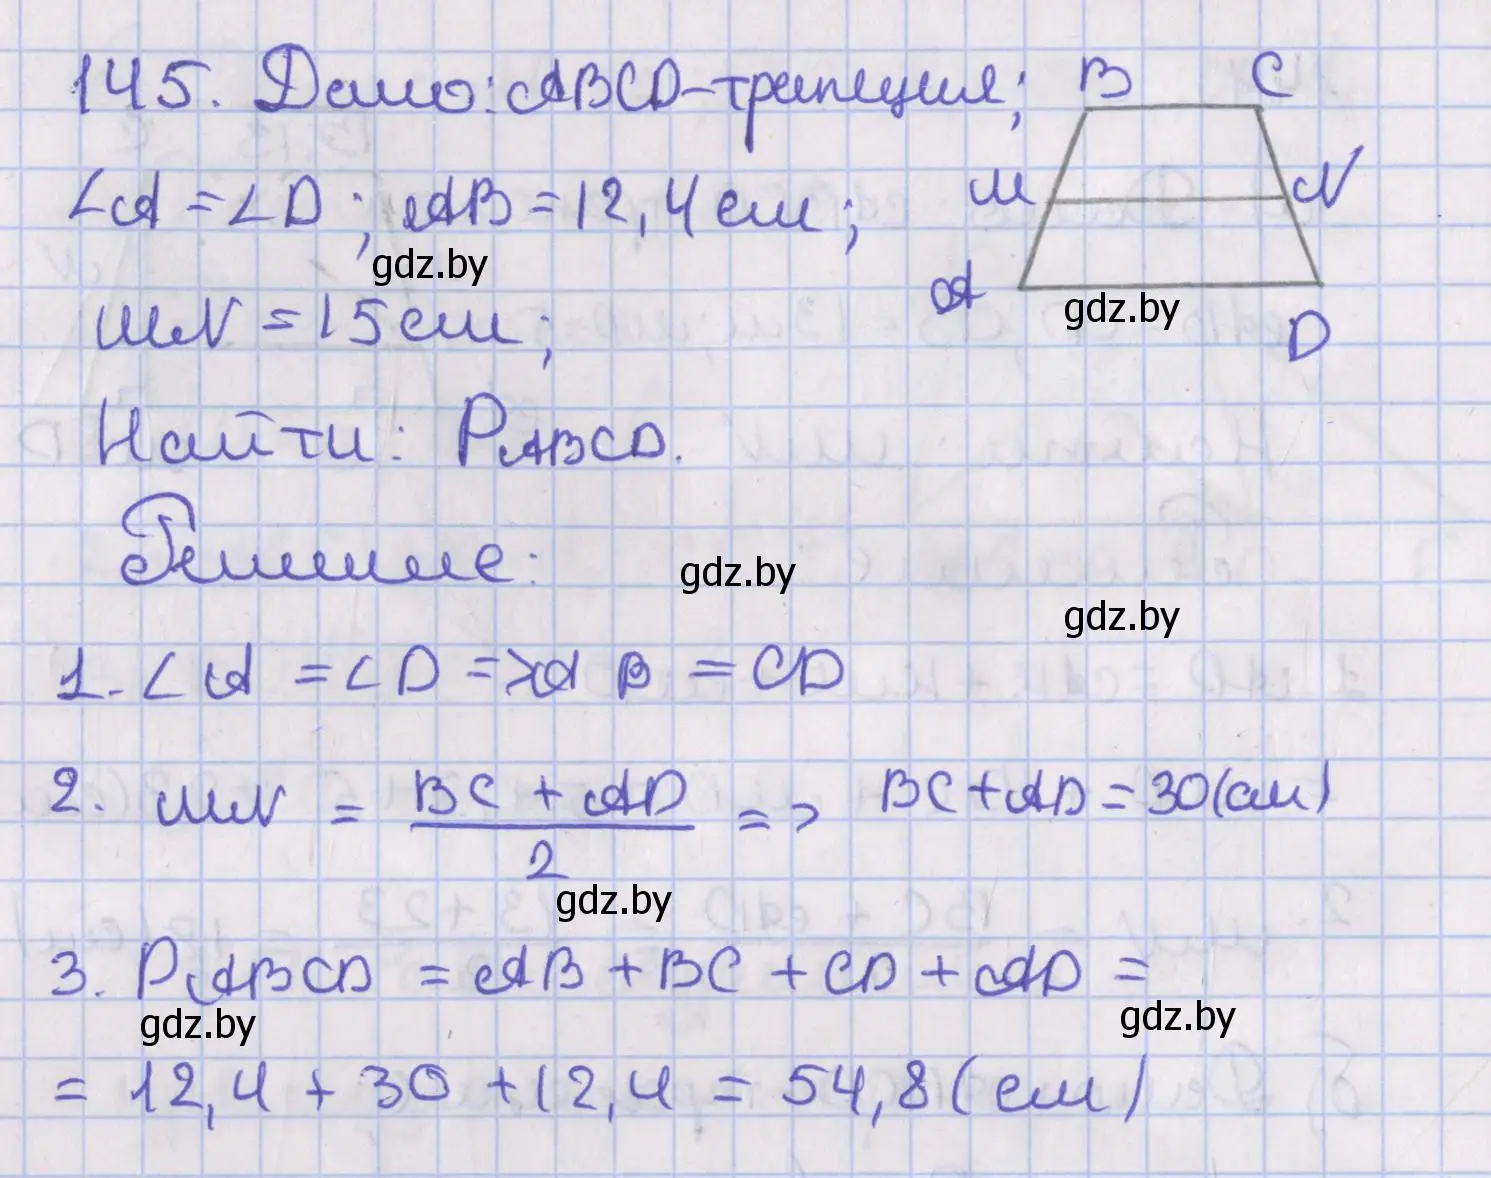 145. Дано: ABCD-трапеция;
∠A = ∠D; AB = 12,4 см;
MN = 15 см;
Найти: PABCD.
Решение:
1. ∠A = ∠D => AB = CD
2. MN = (BC + AD)/2 => BC + AD = 30 (см)
3. PABCD = AB + BC + CD + AD =
= 12,4 + 30 + 12,4 = 54,8 (см)
B C
M N
A D
gdz.by
gdz.by
gdz.by
gdz.by
gdz.by
gdz.by
gdz.by